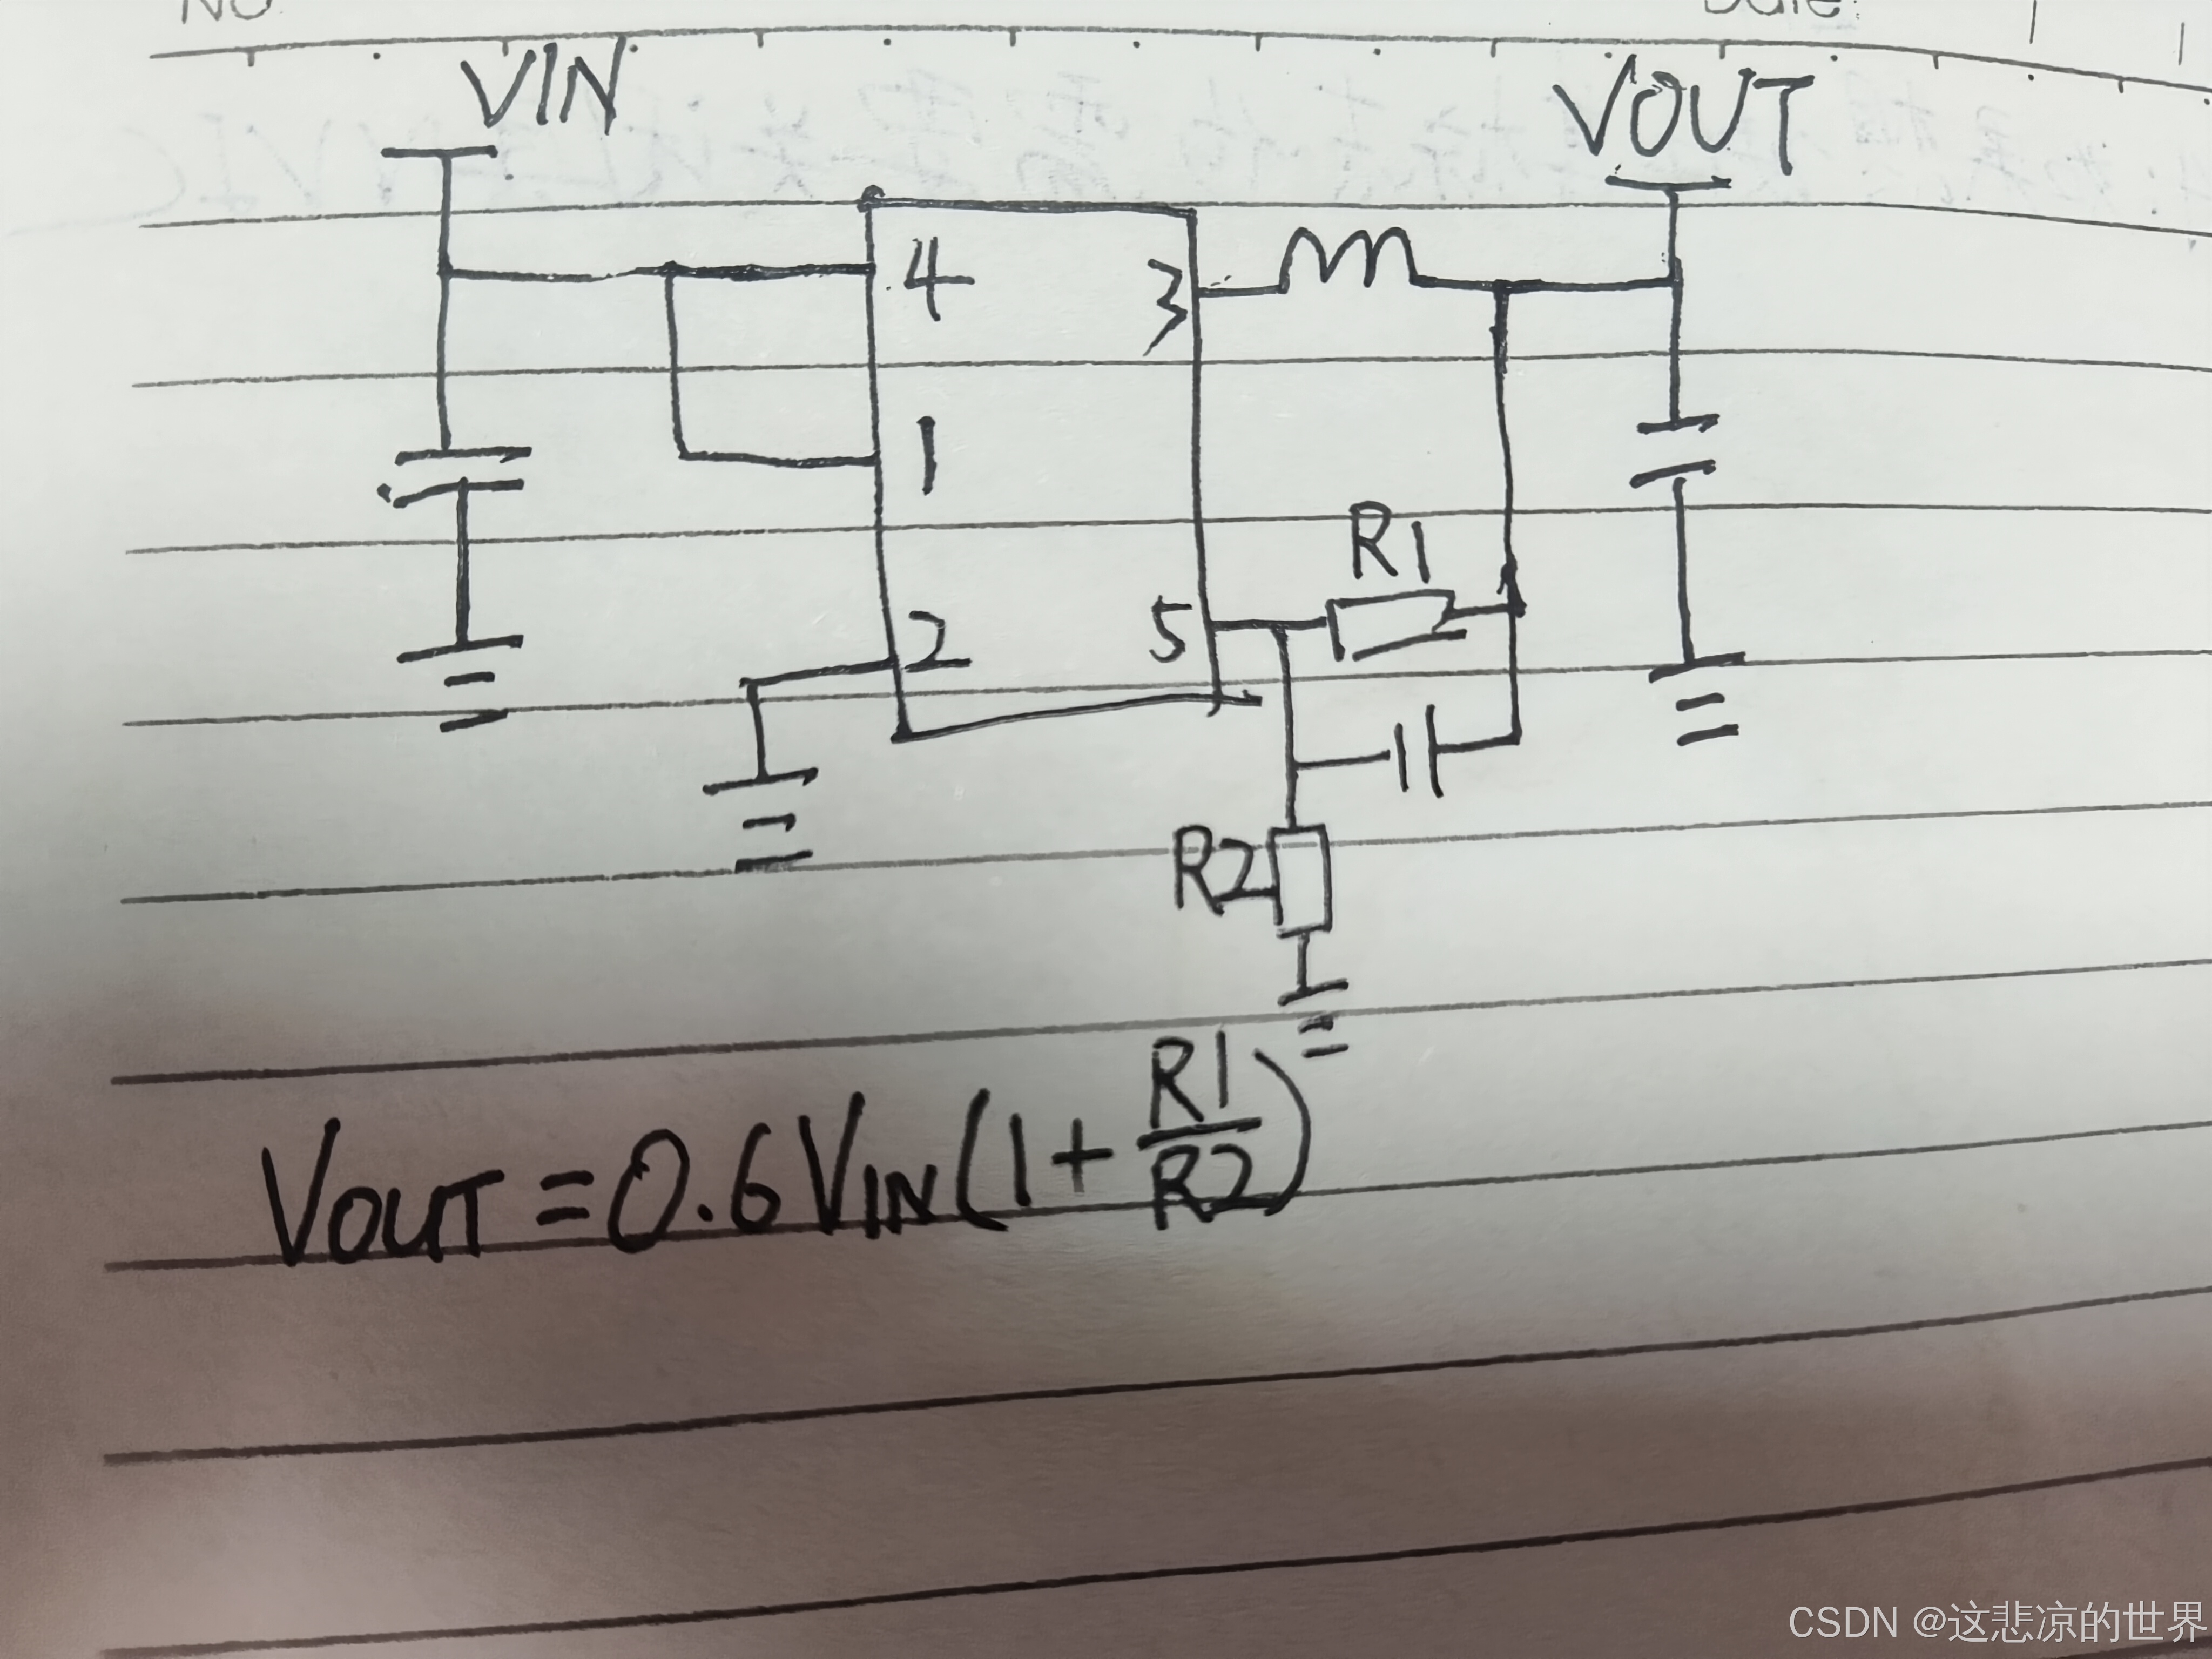 VIN
VOUT
4
3
1
R1
2
5
R2
VOUT = 0.6 VIN (1 + R1/R2)
CSDN @这悲凉的世界